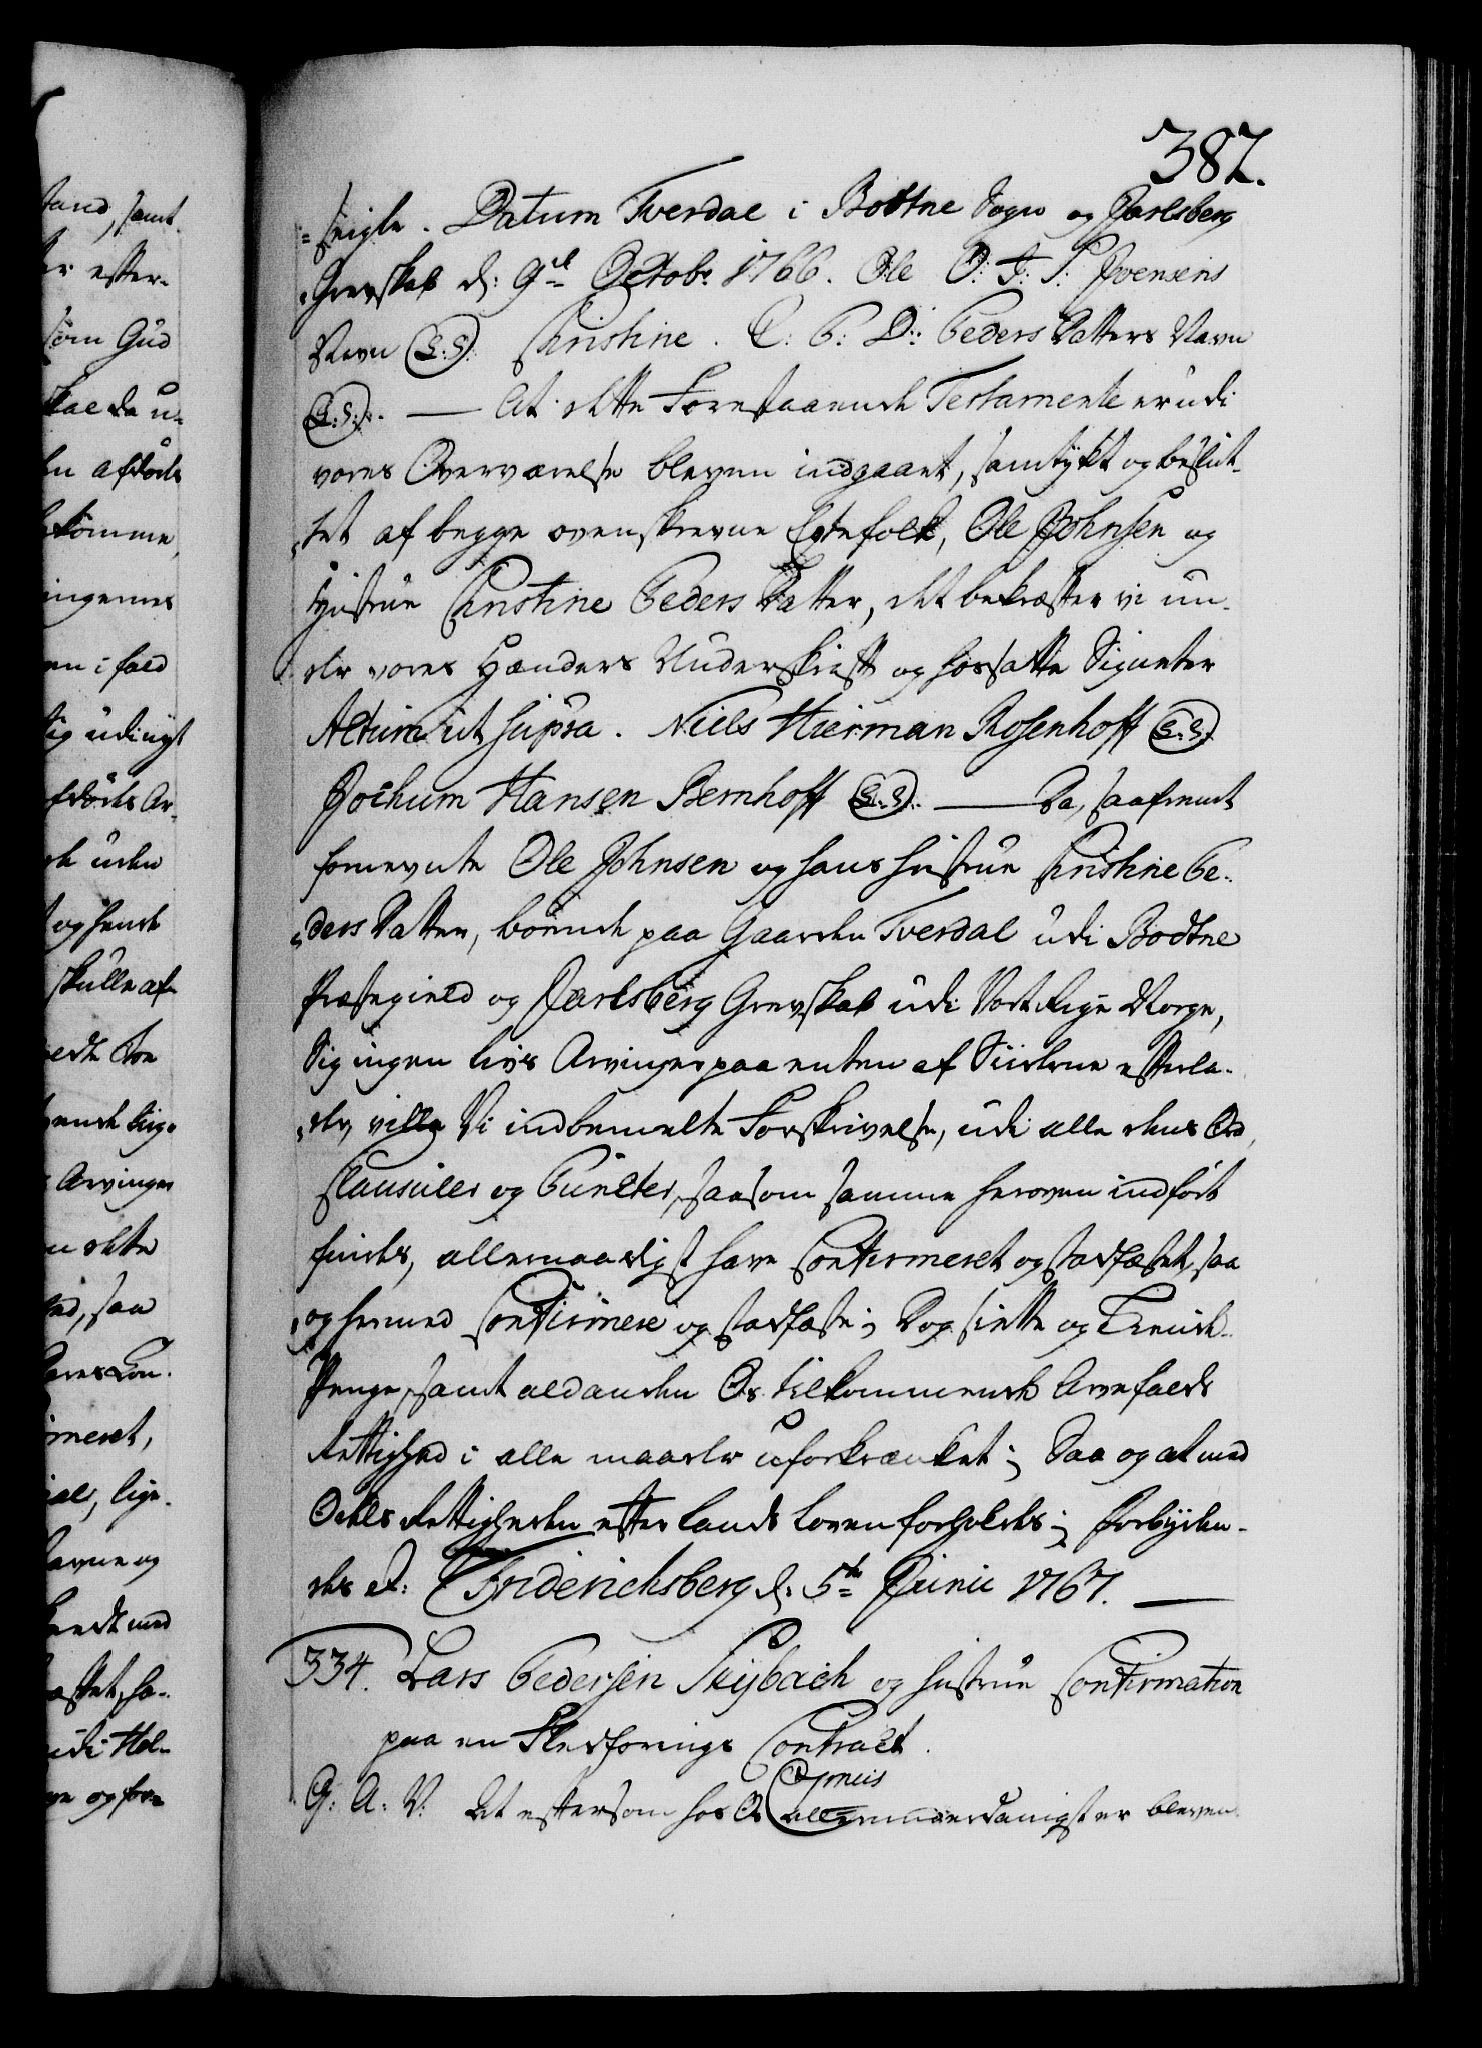 382.
seigle. Datum Tverdal i Bottne Sogn og Jarlsberg
Grevskab d: 9de Octobr 1766. Ole O: J: S: Joensens
Navn (L:S:) Christine. C: P: D: Peders Datters Navn
(L:S:). — At dette Forestaaende Testamente er udi
vores Overværelse bleven indgaaet, samtykt og beslut-
tet af begge ovenskrevne Egtefolk, Ole Johnsen og
Hustrue Christine Peders Datter, det bekræfter vi un-
der vores Hænders Underskrift og hossatte Signeter
Actum ut supra. Niels Hierman Rosenhoff (L:S:)
Jochum Hansen Bernhoff (L:S:). — Da, saafremt
fornevnte Ole Johnsen og hans Hustrue Christine Pe-
ders Datter, boende paa Gaarden Tverdal udi Bodtne
Præstegield og Jarlsberg Grevskab udi Vort Rige Norge,
Sig ingen Livs Arvinger paa enten af Siiderne efterla-
der, ville Vi indbemelte Forskrivelse, udi alle dens Ord,
Clausuler og Puncter, saasom samme heroven indført
findes, allernaadigst have Confirmeret og stadfæstet, saa
og hermed Confirmere og stadfæste; Dog siette og Tiende-
Penge, samt ald anden Os tilkommende Arvefalds
Rettighed i alle maader uforkrænket; Saa og at med
Odels Rettigheden efter Lands Loven forholdes; Forbyden-
des et: Friderichsberg d: 5te Junii 1767. —
334. Lars Pedersen Skybach og Hustrue Confirmation
paa en Fledførings Contract.
G: A: V: Det eftersom hos Os allerunderdanigst er bleven